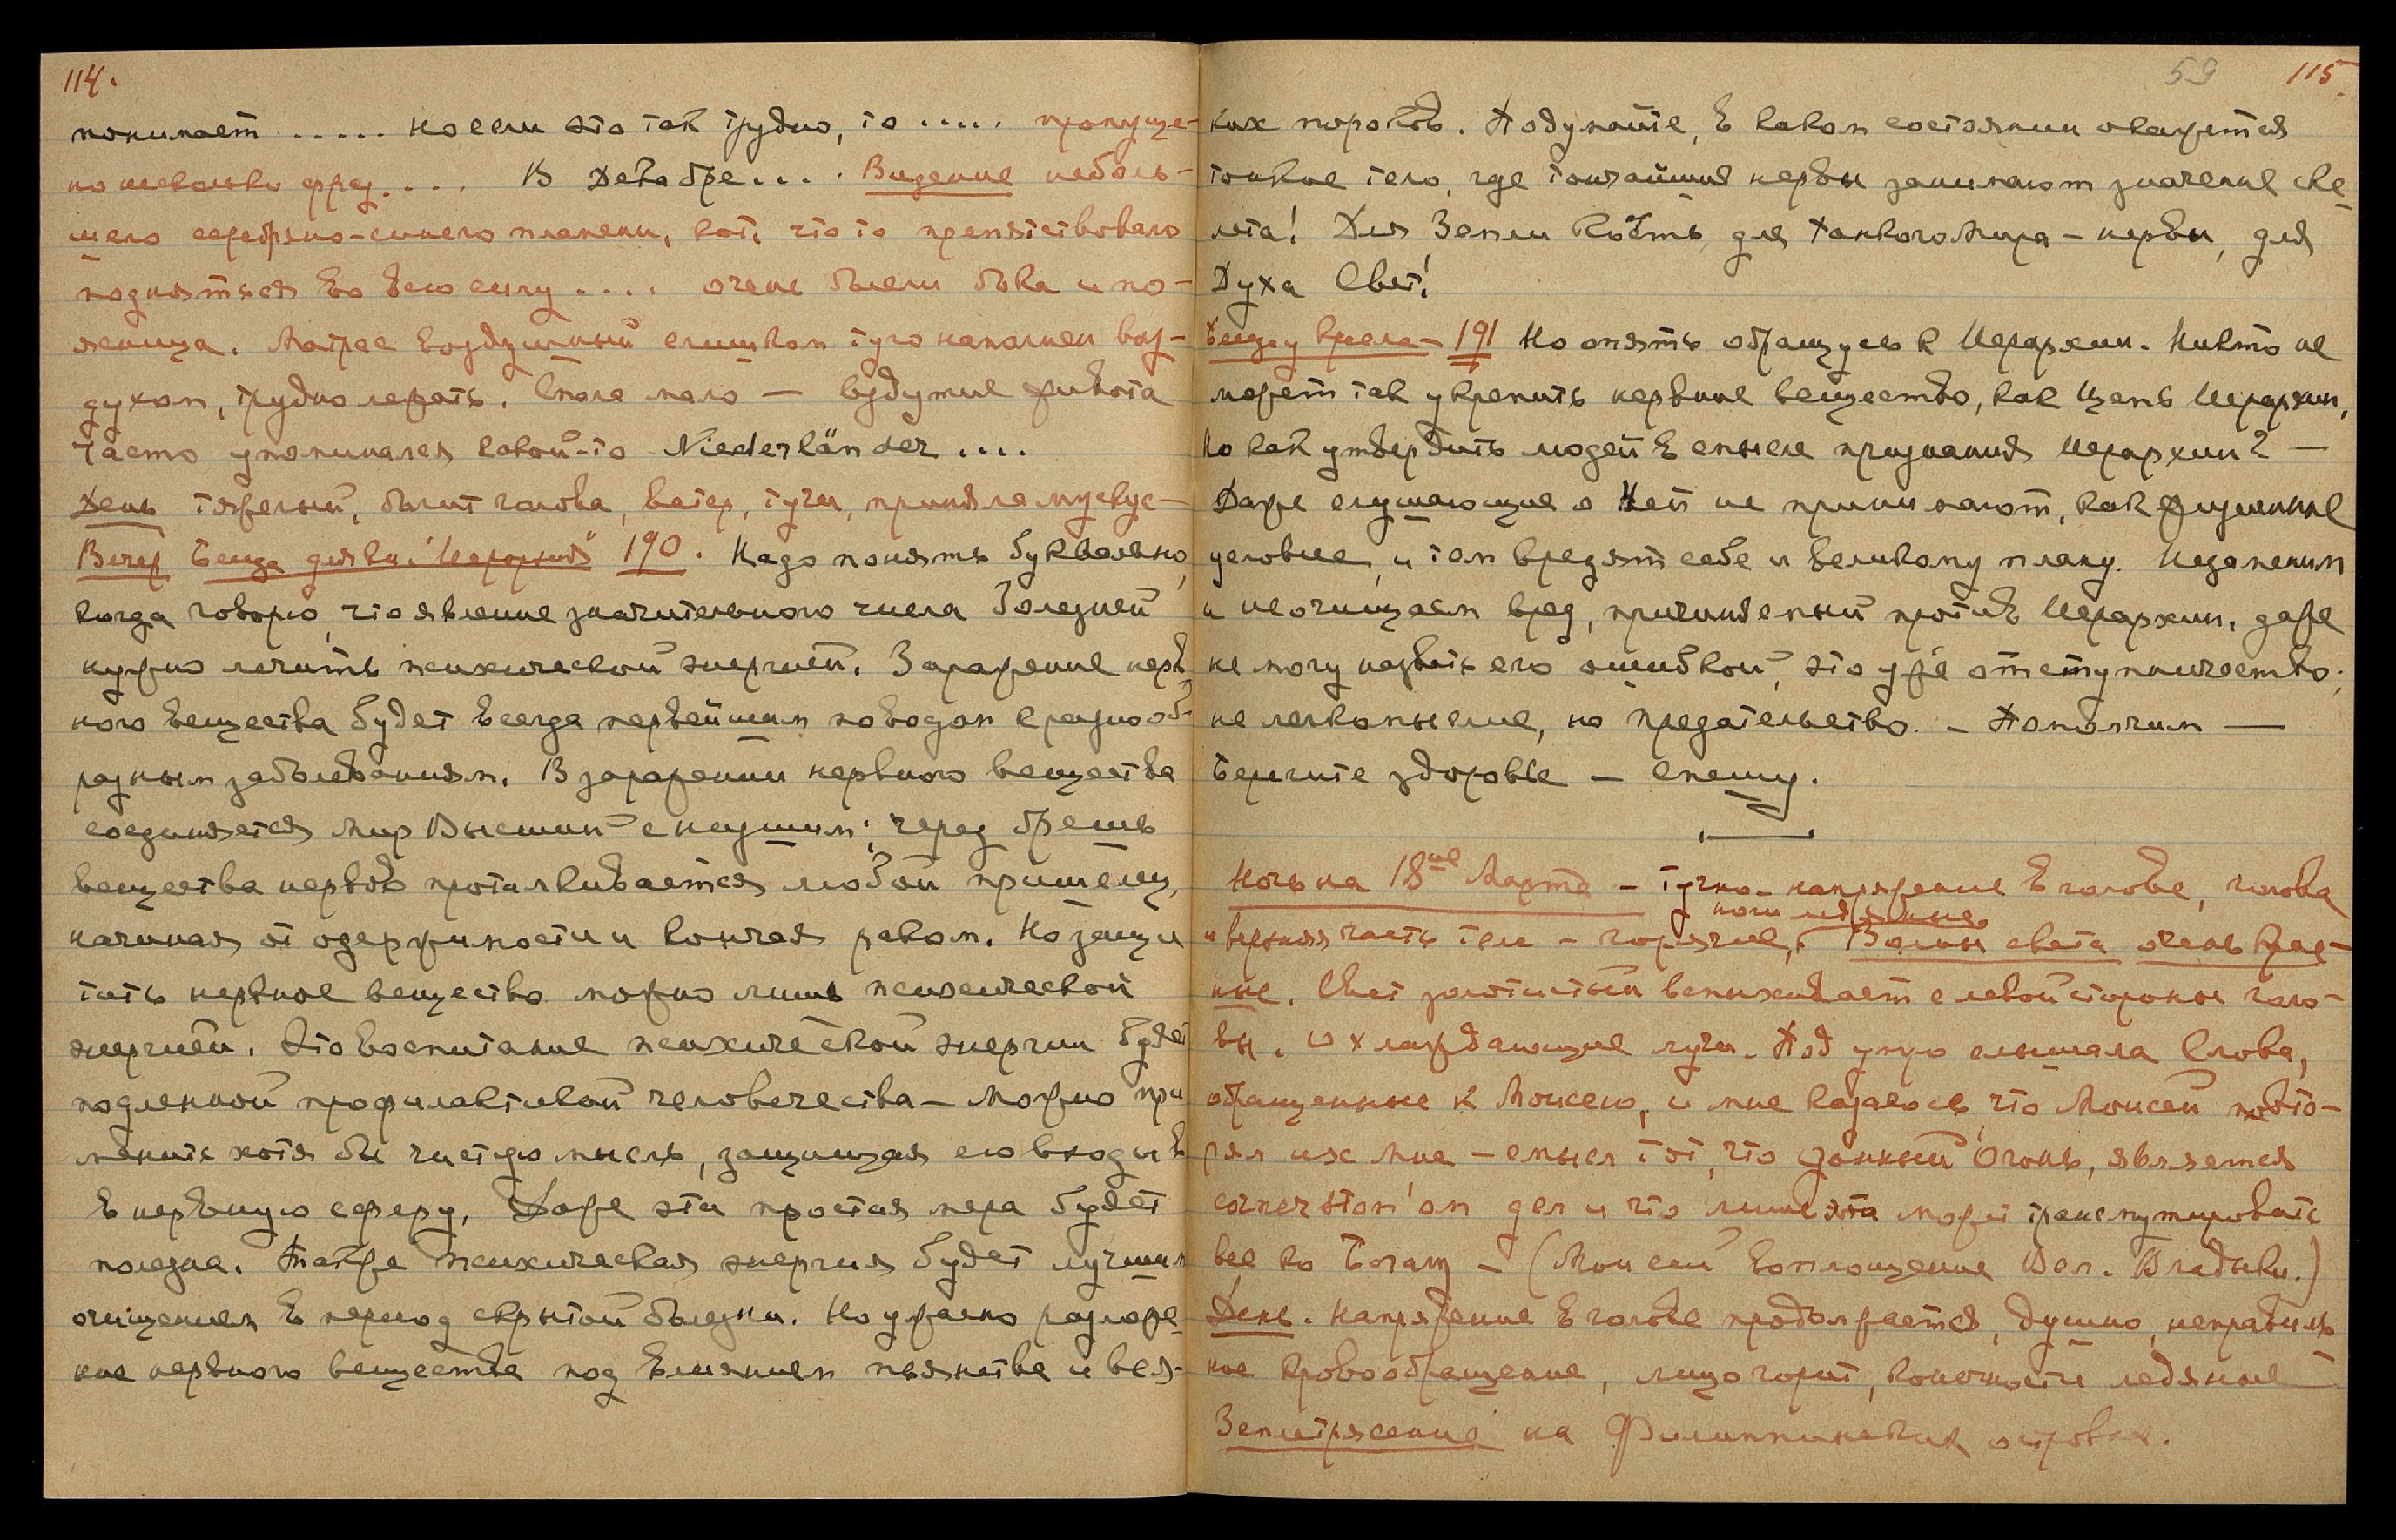 114.
понимает ..... но если это так трудно, то ..... пропуще-
но несколько фраз .... В Декабре .... Видение неболь-
шего серебряно-синего пламени, кот. что то препятствовало
подняться во всю силу .... очень болели бока и по-
ясница. Матрас воздушный слишком туго наполнен воз-
духом, трудно лежать. Спала мало — вздутие живота
Часто упоминался какой-то Niederländer ....
День тяжелый, болит голова, ветер, тучи, приняла мускус —
Вечер Беседа для кн. "Иерархия" 190. Надо понять буквально,
когда говорю, что явление значительного числа болезней
нужно лечить психической энергией. Заражение нерв-
ного вещества будет всегда первейшим поводом к разнооб-
разным заболеваниям. В заражении нервного вещества
соединяется Мир Высший с низшим; через брешь
вещества нервов проталкивается любой пришелец,
начиная от одержимости и кончая раком. Но защи
тить нервное вещество можно лишь психической
энергией. Это воспитание психической энергии будет
подленной профилактикой человечества — можно при
менить хотя бы чистую мысль, защищая ею входы
в нервную сферу. Даже эта простая мера будет
полезна. Также психическая энергия будет лучшим
очищением в период скрытой болезни. Но ужасно разлоре-
ние нервного вещества под влиянием пьянства и вся-
59 115.
ких пороков. Подумайте, в каком состоянии окажется
тонкое тело, где тончайшие нервы занимают значение ске
лета! Для Земли кость, для Тонкого Мира — нервы, для
Духа Свет!
191 Но опять обращусь к Иерархии. Никто не
может так укрепить нервное вещество, как Цепь Иерархии,
Но как утвердить людей в смысле признания Иерархии? —
Даже слушающие о Ней не принимают, как жизненные
условие, и тем вредят себе и великому плану. Незаменим
и неочищаем вред, причиненый против Иерархии, даже
не могу назвать его ошибкой, это уже отступничество;
не легкомыслие, но предательство. — Помолчим —
Берегите здоровье — Спешу.
Ночь на 18ое Марта — Тучно — напряжение в голове, голова
ноги ледяные.
и верхняя часть тела — горячие, Волны света очень крас-
ные. Свет золотистый вспыхивает с левой стороны голо-
вы. Охлаждающие лучи. Под утро слышала Слова,
обращенные к Моисею, и мне казалось, что Моисей повто-
рял их мне — смысл тот, что данный Огонь, является
corner ston'ом дел и что лишь эта может трансмутировать
все ко Благу — (Моисей воплощение Вел. Владыки.)
День. Напряжение в голове продолжается, душно, неправиль
ное кровообращение, лицо горит, конечности ледяные —
Землетрясение на Филиппинских островах.